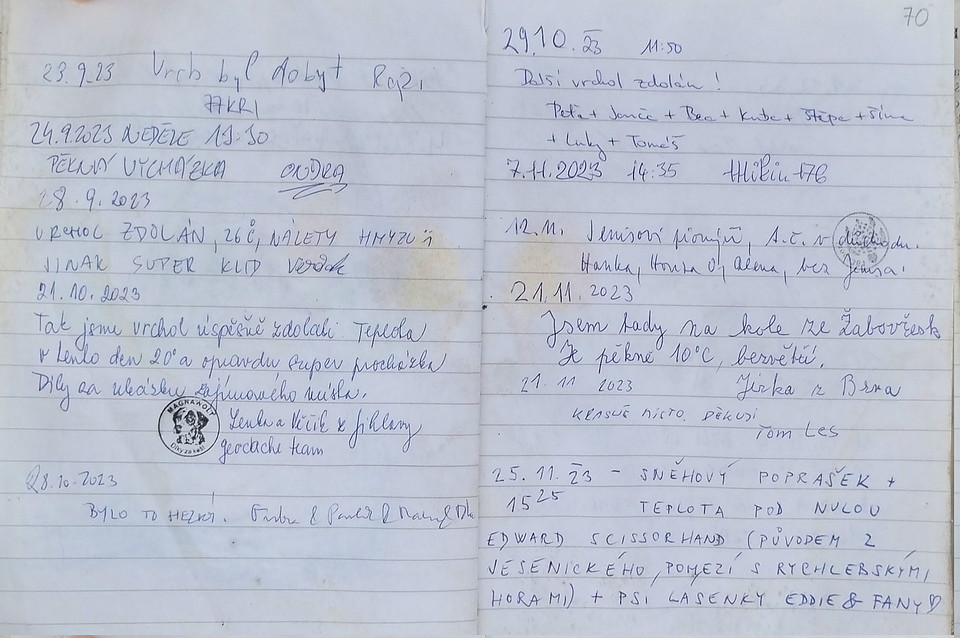 23.9.23 Vrch byl dobyt
24.9.2023 NEDĚLE 19:30
PĚKNÁ VYCHÁZKA ONDRA
28.9.2023
VRCHOL ZDOLÁN, 26°C, NÁLETY HMYZU
JINAK SUPER KLID
21.10.2023
Tak jsme vrchol úspěšně zdolali Teplota
v tento den 20° a opravdu super procházka
Díky za ukázku zajímavého místa.
MAGNAWOLF
Díky za keš!
Lenka a Vičík z Jihlavy
geocache team
28.10.2023
BYLO TO HEZKÝ. & Pavel &
70
29.10.23 11:50
Další vrchol zdolán!
Peťa + Janča + Bea + Kuba + Štěpa + Šíma
+ Luky + Tomáš
7.11.2023 14:35
12.11. v důchodu.
Hanka, Honza O, Alena, bez
21.11.2023
Jsem tady na kole ze Žabovřesk
Je pěkně 10°C, bezvětří.
21.11 2023 Jirka z Brna
KRÁSNÉ MÍSTO. DĚKUJI
Tom Les
25.11.23 – SNĚHOVÝ POPRAŠEK +
15²⁵ TEPLOTA POD NULOU
EDWARD SCISSORHAND (PŮVODEM Z
JESENICKÉHO, POMEZÍ S RYCHLEBSKÝMI
HORAMI) + PSI LASENKY EDDIE & FANY♡